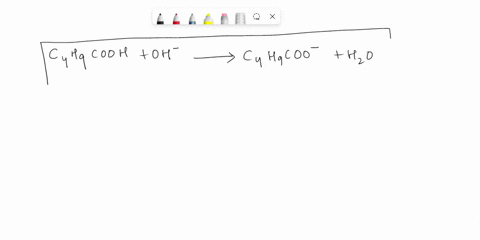 C₄H₉COOH + OH⁻ ⟶ C₄H₉COO⁻ + H₂O